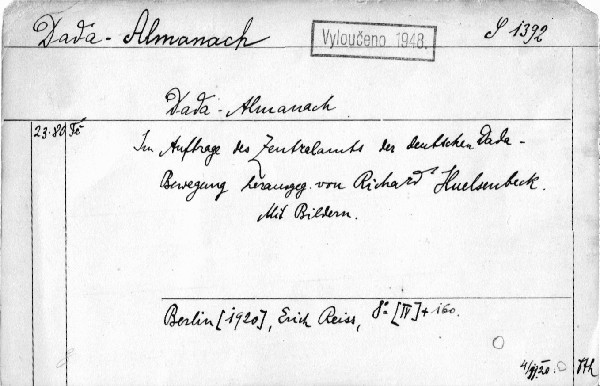 Dada - Almanach
Vyloučeno 1948.
S 1392
Dada - Almanach
23·80
Im Auftrage des Zentralamts der deutschen Dada-
Bewegung herausgeg. von Richard Huelsenbeck.
Mit Bildern.
Berlin [1920], Erich Reiss, 8° [IV] + 160.